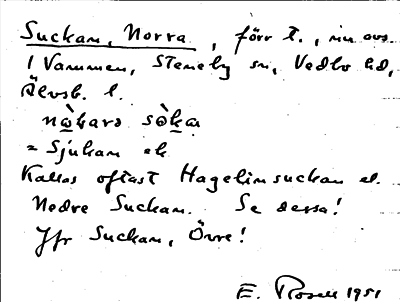 Suckan, Norra, förr t., nu avs.
i Vammen, Steneby sn, Vedbo hd,
Älvsb. l.
ną̀kars sòka
= Sjukan ek
Kallas oftast Hagelinsuckan el.
Nedre Suckan. Se dessa!
Jfr Suckan, Övre!
E. Rosell 1951